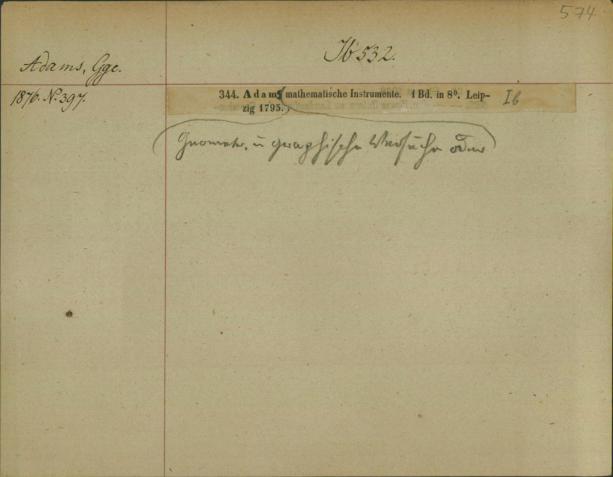 574
Ib 532.
Adams, Gge.
1876. Nr. 397.
344. Adams mathematische Instrumente. 1 Bd. in 8°. Leip-
zig 1795.)
Ib
(Geometr. u. graphische Versuche oder)